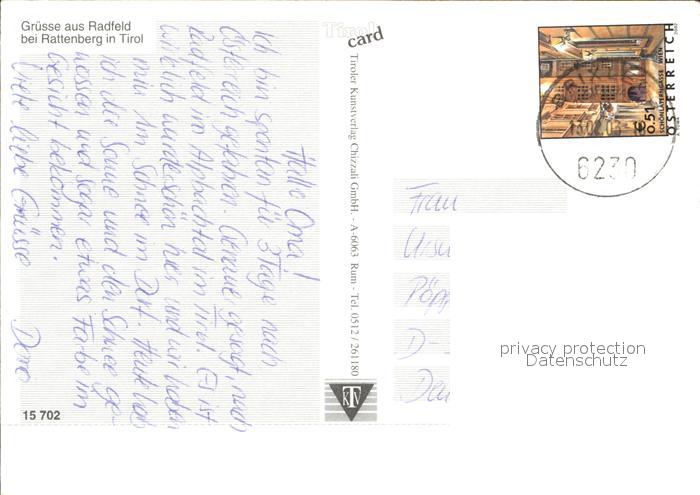 Grüsse aus Radfeld
bei Rattenberg in Tirol
Hallo Oma!
Ich bin spontan für 3 Tage nach
Österreich gefahren. Genauer gesagt, nach
Radfeld im Alpbachtal im Tirol. Es ist
wirklich wunderschön hier und wir haben
nur 1m Schnee im Dorf. Heute hab
ich die Sonne und den Schnee ge-
nossen und sogar etwas Farbe im
Gesicht bekommen.
Viele liebe Grüsse
15 702
Tirol
card
Tiroler Kunstverlag Chizzali GmbH. - A-6063 Rum - Tel. 0512 / 261180
KTV
€ 0.51
SCHÖNLATERNGASSE WIEN
ÖSTERREICH
6230
Frau
Ursu
Pöpp
D-
privacy protection
Datenschutz